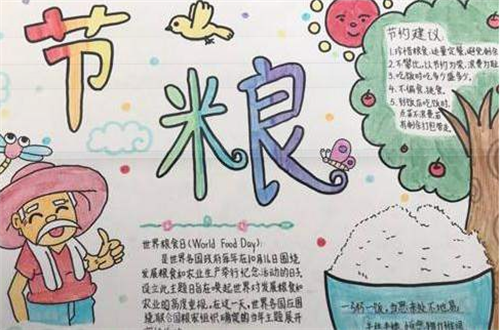 节粮
节约建议
1.珍惜粮食,适量定餐,避免剩
2.不攀比,以节约为荣,浪费为耻
3.吃饭时吃多少盛多少。
4.不偏食、挑食。
5.到饭店吃饭时,
点菜不浪费,若
有剩余打包带走。
世界粮食日(World Food Day):
是世界各国政府每年在10月16日围绕
发展粮食和农业生产举行纪念活动的日子
设立此主题日旨在唤起世界对发展粮食和
农业的高度重视。在这一天,世界各国应围
绕联合国粮农组织确定的当年主题展开
一粥一饭,当思来处不地易,